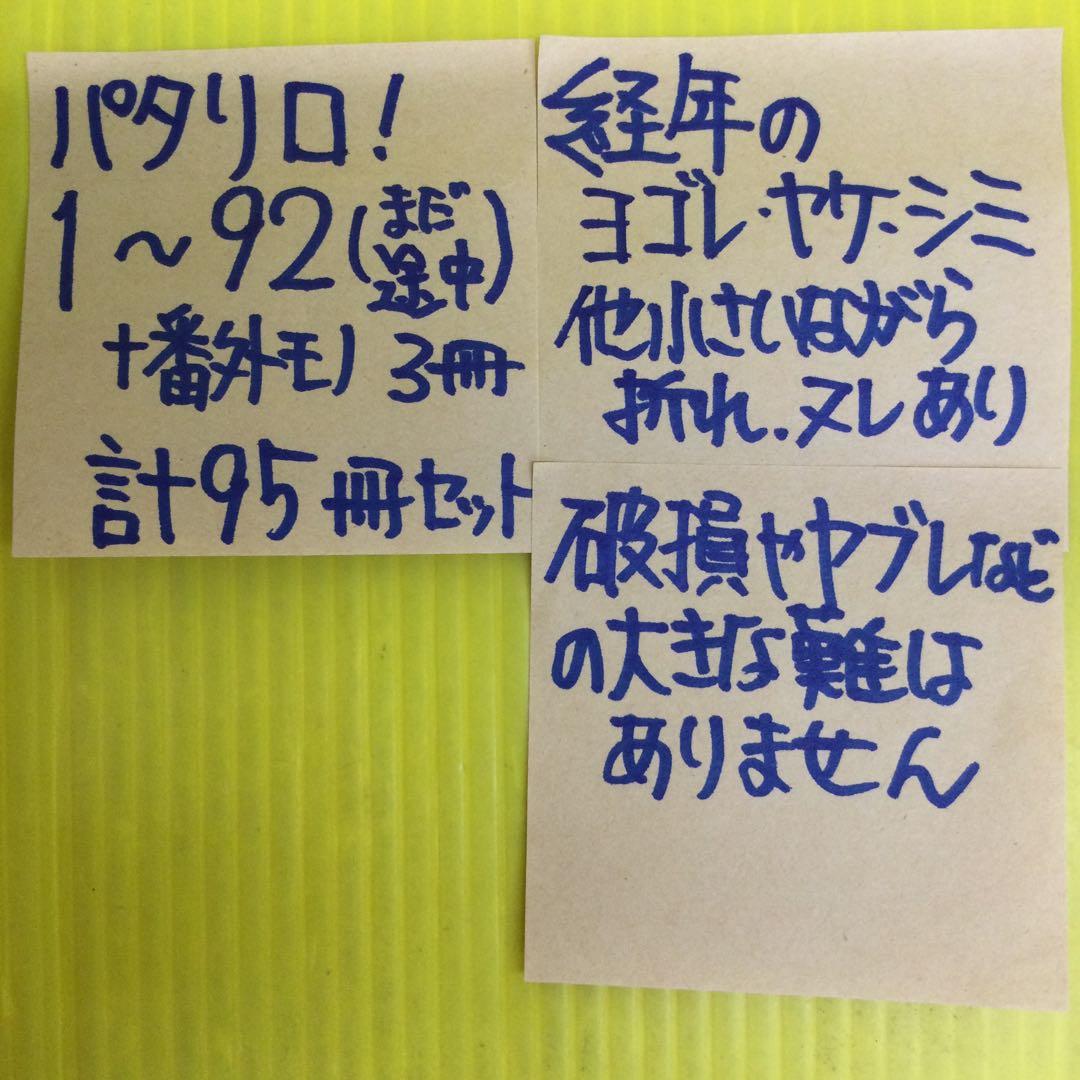 パタリロ!
1～92(まだ途中)
+番外モノ 3冊
計95冊セット
経年の
ヨゴレ・ヤケ・シミ
他小さいながら
折れ、ヌレあり
破損やヤブレなど
の大きな難は
ありません